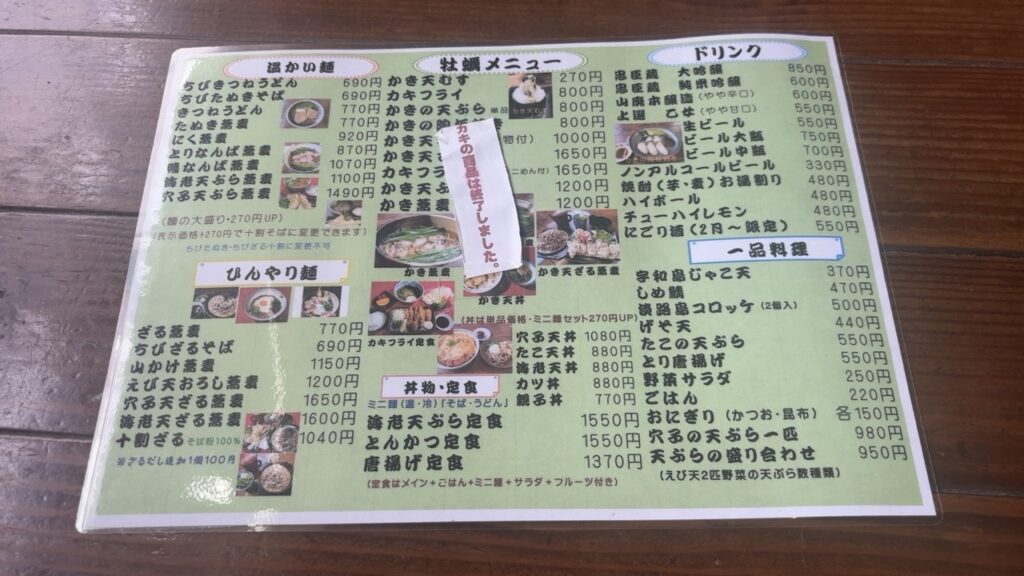 温かい麺
ちびきつねうどん 690円
ちびたぬきそば 690円
きつねうどん 770円
たぬき蕎麦 770円
にく蕎麦 920円
とりなんば蕎麦 870円
鴨なんば蕎麦 1070円
海老天ぷら蕎麦 1100円
穴子天ぷら蕎麦 1490円
(麺の大盛り・270円UP)
(表示価格+270円で十割そばに変更できます)
ちびたぬき・ちびざる十割に変更不可
ひんやり麺
ざる蕎麦 770円
ちびざるそば 690円
山かけ蕎麦 1150円
えび天おろし蕎麦 1200円
穴子天ざる蕎麦 1650円
海老天ざる蕎麦 1600円
十割ざる そば粉100% 1040円
※ざるだし追加1個100円
牡蠣メニュー
かき天むす 270円
カキフライ 800円
かきの天ぷら 単品 800円
かきの 800円
物付) 1000円
かき天ざ 1650円
カキフライ ミニめん付) 1650円
かき天 1200円
かき蕎麦 1200円
かき天むす
カキの商品は終了しました。
かき蕎麦
かき天ざる蕎麦
かき天丼
カキフライ定食
(丼は単品価格・ミニ麺セット270円UP)
穴子天丼 1080円
たこ天丼 880円
海老天丼 880円
カツ丼 880円
親子丼 770円
丼物・定食
ミニ麺(温・冷)「そば・うどん」
海老天ぷら定食 1550円
とんかつ定食 1550円
唐揚げ定食 1370円
(定食はメイン+ごはん+ミニ麺+サラダ+フルーツ付き)
ドリンク
忠臣蔵 大吟醸 850円
忠臣蔵 純米吟醸 600円
山廃本醸造(やや辛口) 600円
上選 乙女(やや甘口) 550円
生ビール 550円
ビール大瓶 750円
ビール中瓶 700円
ノンアルコールビール 330円
焼酎(芋・麦)お湯割り 480円
ハイボール 480円
チューハイレモン 480円
にごり酒(2月~限定) 550円
一品料理
宇和島じゃこ天 370円
しめ鯖 470円
淡路島コロッケ(2個入) 500円
げそ天 440円
たこの天ぷら 550円
とり唐揚げ 550円
野菜サラダ 250円
ごはん 220円
おにぎり(かつお・昆布) 各150円
穴子の天ぷら一匹 980円
天ぷらの盛り合わせ 950円
(えび天2匹野菜の天ぷら数種類)